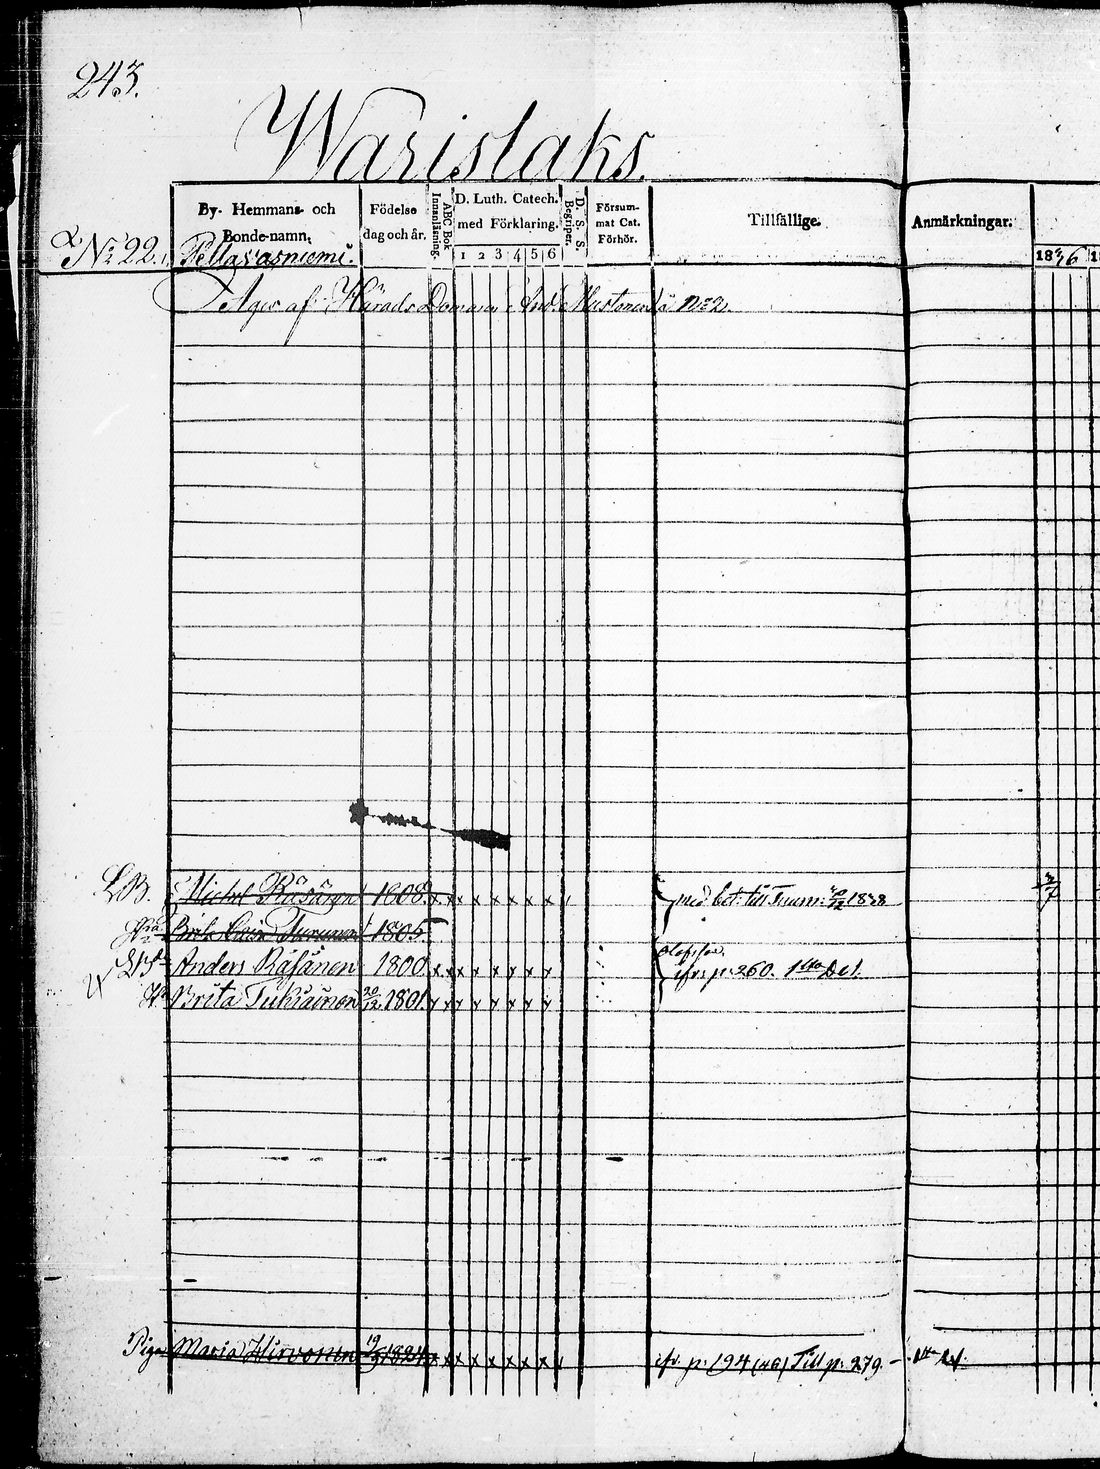 243.
Warislaks.
By- Hemmans- och Bonde-namn.
Födelse dag och år.
ABC Bok Innanläsning.
D. Luth. Catech. med Förklaring.
1 2 3 4 5 6
D. S. S. Begriper.
Försum- mat Cat. Förhör.
Tillfällige.
Anmärkningar.
1836
№ 22. Pellasvasniemi.
Äges af Härads Domaren And. Mustonen å № 2.
LB. Michel Räsänen 1808. x x x x x x x x med bet. till 1838
Brita Turunen 1805.
Anders Räsänen 1800 x x x x x x x x p. 260. 1sta Del.
Brita Tukiainen 20/12 1801. x x x x x x x x
Piga Maria Hirvonen 19/9 1821 x x x x x x x x cfr. p. 194 (46) Till p. 279